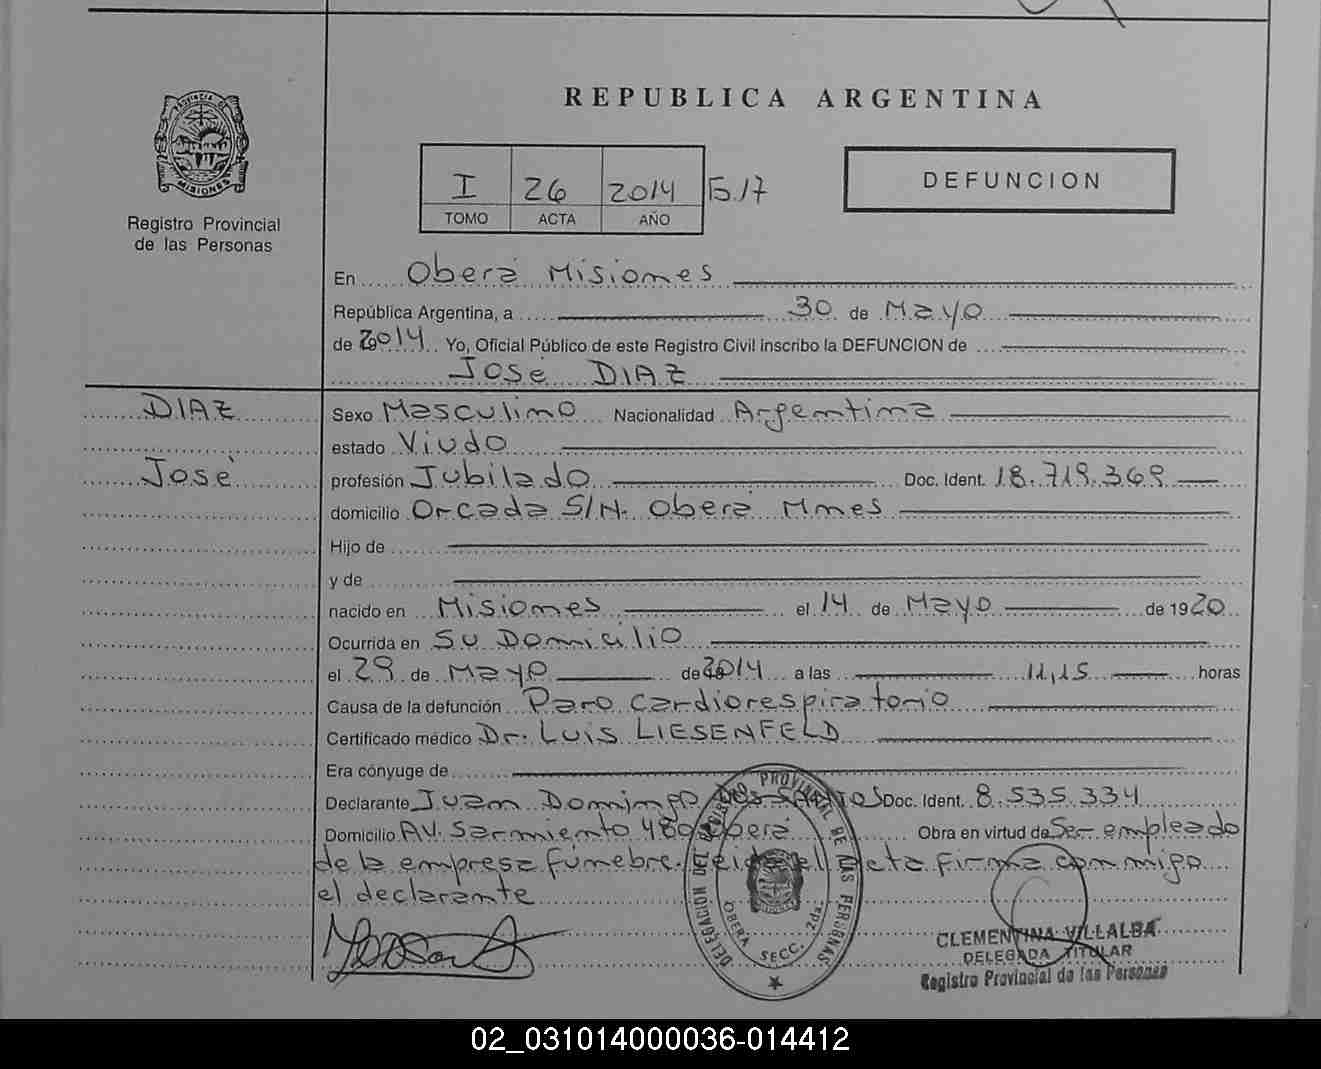 PROVINCIA DE
MISIONES
Registro Provincial
de las Personas
REPUBLICA ARGENTINA
I 26 2014 F.17
TOMO ACTA AÑO
DEFUNCION
En Oberá Misiones
República Argentina, a 30 de Mayo
de 2014 Yo, Oficial Público de este Registro Civil inscribo la DEFUNCION de
José DIAZ
DIAZ
José
Sexo Masculino Nacionalidad Argentina
estado Viudo
profesión Jubilado Doc. Ident. 18.719.369
domicilio Orcada S/N. Oberá Mnes
Hijo de
y de
nacido en Misiones el 14 de Mayo de 1920
Ocurrida en Su Domicilio
el 29 de Mayo de 2014 a las 11,15 horas
Causa de la defunción Paro cardiorespiratorio
Certificado médico Dr. Luis LIESENFELD
Era cónyuge de
Declarante Juan Domingo DOS SANTOS Doc. Ident. 8.535.334
Domicilio AV. Sarmiento 480 Oberá Obra en virtud de Ser empleado
de la empresa fúnebre. Leida el acta firma conmigo
el declarante
DELEGACION DEL REGISTRO PROVINCIAL DE LAS PERSONAS
OBERA SECC. 2da.
CLEMENTINA VILLALBA
DELEGADA TITULAR
Registro Provincial de las Personas
02_031014000036-014412